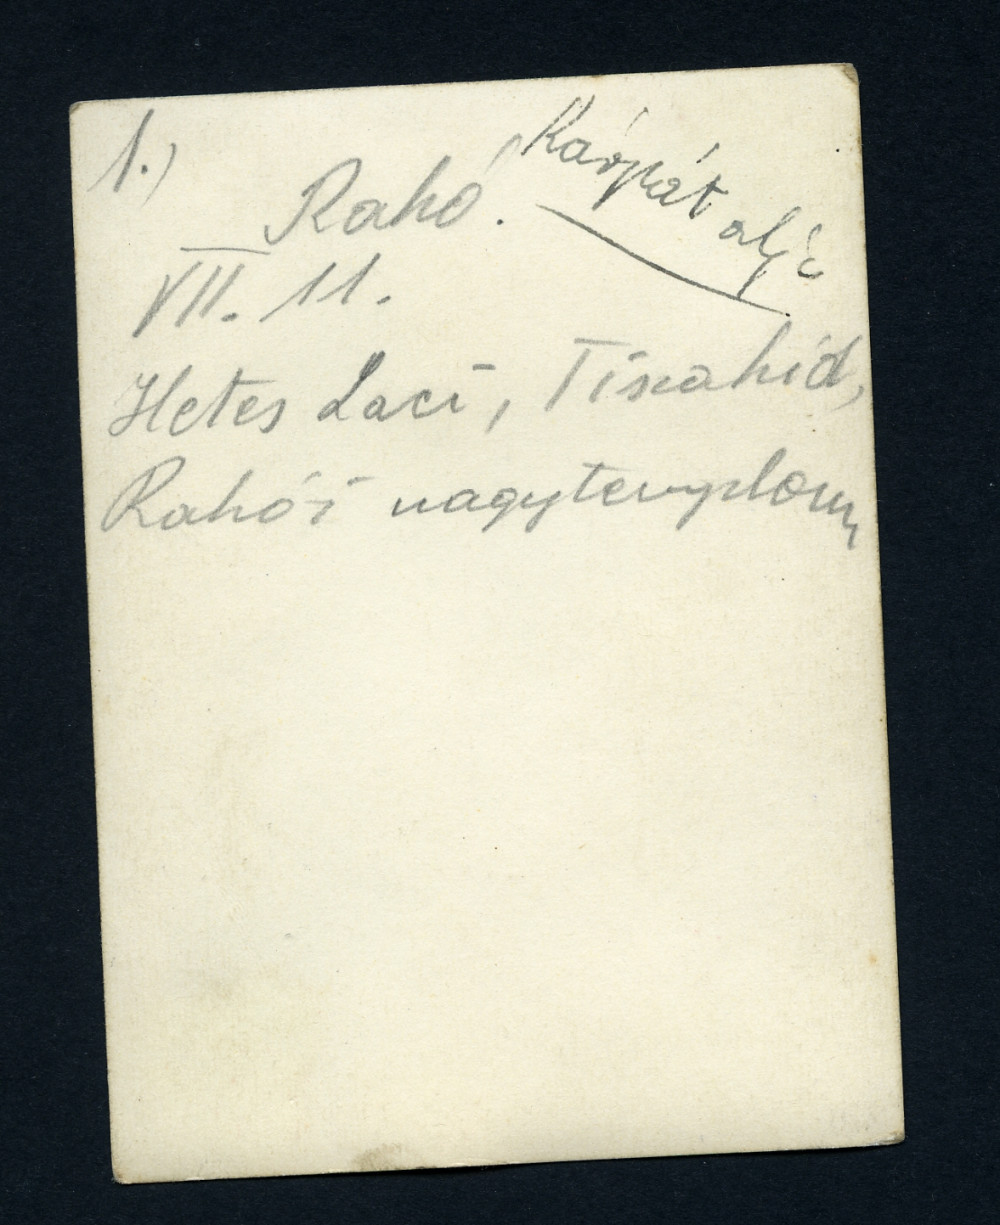 1.)
Rahó.
Kárpátalja
VII. 11.
Hetes Laci, Tiszahíd,
Rahói nagytemplom